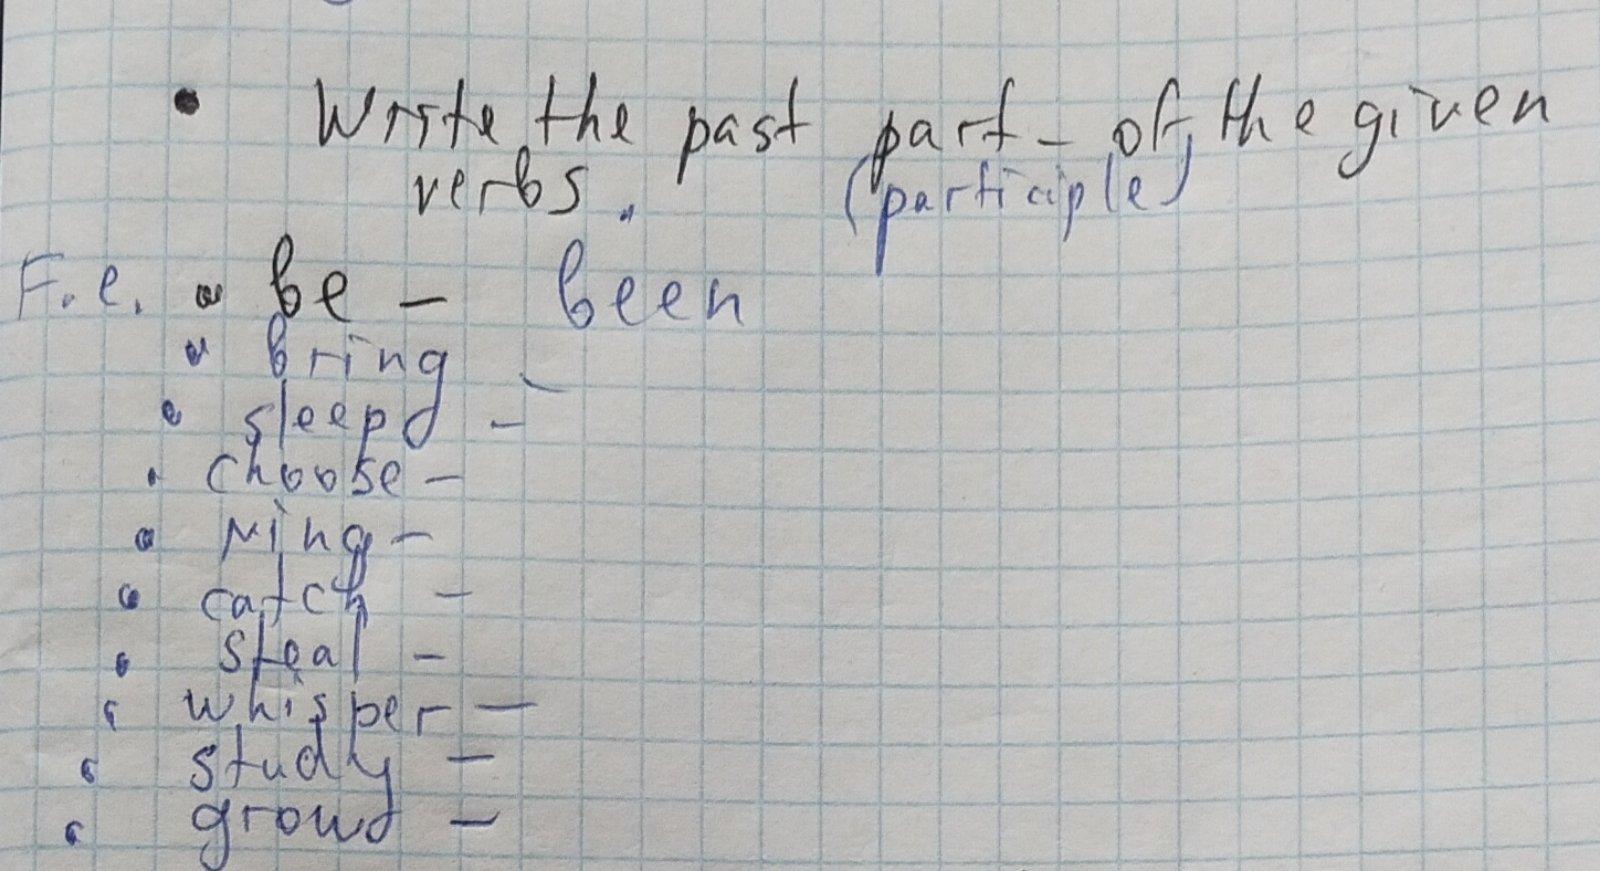 • Write the past part - of the given
verbs. (participle)
F.e. • be - been
• bring -
• sleep -
• choose -
• ring -
• catch -
• steal -
• whisper -
• study -
• grow -